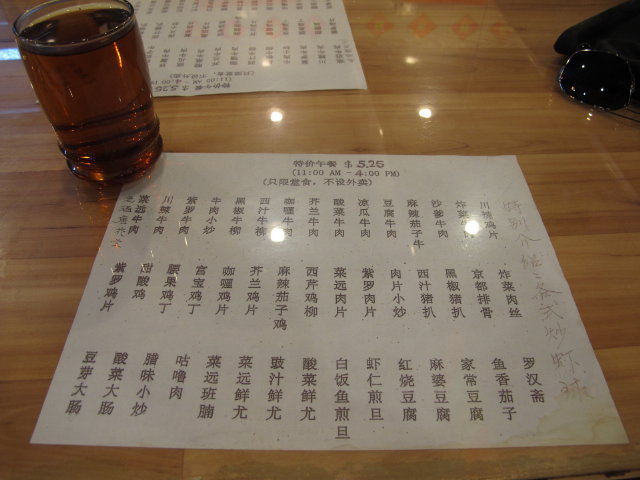 特价午餐 $5.25
(11:00 AM - 4:00 PM)
(只限堂食，不设外卖)
川辣鸡片
炸菜牛肉
沙爹牛肉
麻辣茄子牛
豆腐牛肉
凉瓜牛肉
酸菜牛肉
芥兰牛肉
咖喱牛肉
西汁牛柳
黑椒牛柳
牛肉小炒
紫罗牛肉
川辣牛肉
菜远牛肉
炸菜肉丝
京都排骨
黑椒猪扒
西汁猪扒
肉片小炒
紫罗肉片
菜远肉片
西芹鸡柳
麻辣茄子鸡
芥兰鸡片
咖喱鸡片
宫宝鸡丁
腰果鸡丁
甜酸鸡
紫罗鸡片
罗汉斋
鱼香茄子
家常豆腐
麻婆豆腐
红烧豆腐
虾仁煎旦
白饭鱼煎旦
酸菜鲜尤
豉汁鲜尤
菜远鲜尤
菜远班腩
咕噜肉
腊味小炒
酸菜大肠
豆芽大肠
特别介绍：各式炒虾球
特价午餐 $5.25
(11:00 AM - 4:00 P
(只限堂食，不设外卖)